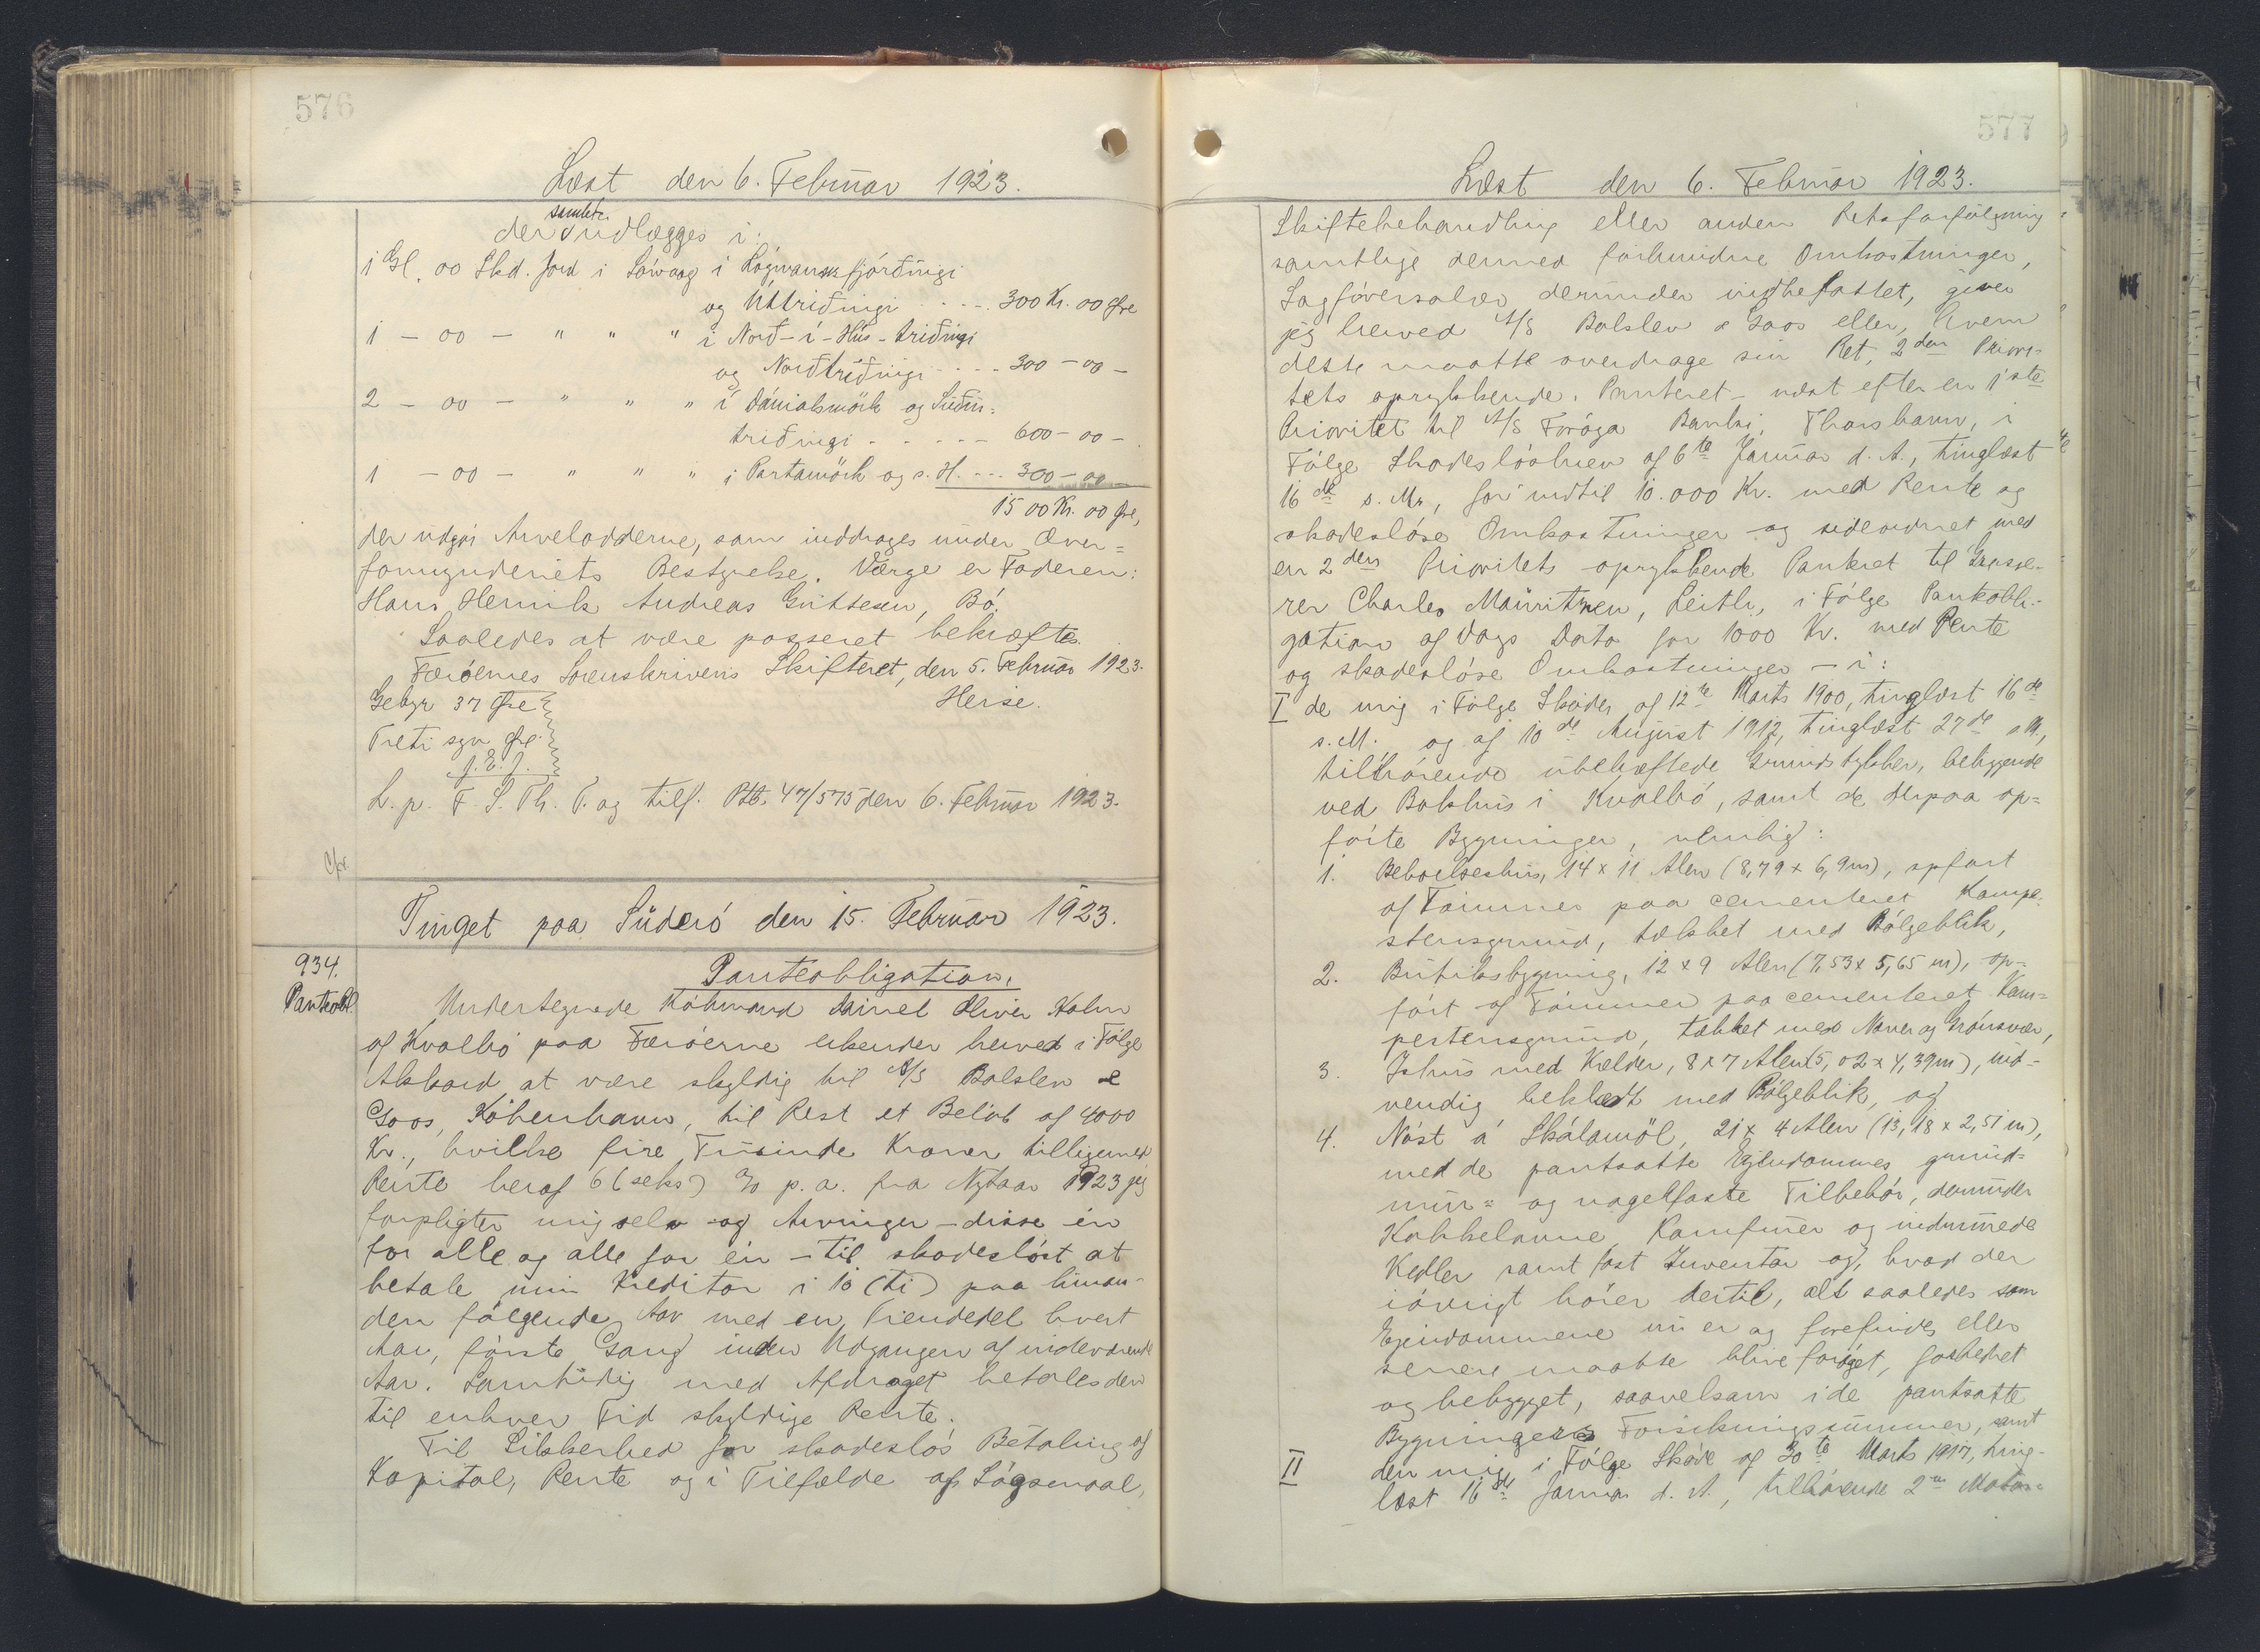 576
Læst den 6. Februar 1923.
samlede
der udlægges i:
1 Gl. 00 Skd. Jord i Sórvaag i Lógmansfjórðingi
og Úttriðingi - - - - 300 Kr. 00 Øre
1 - 00 - " " " i Norð-í-Hús-triðingi
og Norðtriðingi - - - - 300 - 00 -
2 - 00 - " " " í Dánialsmörk og Suður=
triðingi - - - - - 600 - 00 -
1 - 00 - " " " i Partamörk og s. H. - - - 300 - 00 -
1500 Kr. 00 Øre,
der udgør Arvelodderne, som inddrages under Over=
formynderiets Bestyrelse. Værge er Faderen:
Hans Henrik Andreas Guttesen, Bó.
Saaledes at være passeret bekræftes.
Færóernes Sorenskriveris Skifteret, den 5. Februar 1923.
Gebyr 37 Øre Heise.
Treti syv Øre
J. E. J.
L. p. F. S. Th. P. og tilf. Ptb. 47/575 den 6. Februar 1923.
C/pr.
Tinget paa Suderó den 15. Februar 1923.
934.
Pantobl.
Panteobligation.
Undertegnede Kóbmand Dainel Oliver Holm
af Kvalbó paa Færóerne erkender herved i Fólge
Akkord at være skyldig til A/S Balslev &
Goos, Kóbenhavn, til Rest et Belób af 4000
Kr., hvilke fire Tusinde Kroner tilligemed
Rente heraf 6 (seks) % p. a. fra Nytaar 1923 jeg
forpligter mig selv og Arvinger - disse én
for alle og alle for én - til skadeslóst at
betale min Kreditor i 10 (ti) paa hinan-
den fólgende Aar med en Tiendedel hvert
Aar, fórste Gang inden Udgangen af indeværende
Aar. Samtidig med Afdraget betales den
til enhver Tid skyldige Rente.
Til Sikkerhed for skadeslós Betaling af
Kapital, Rente og i Tilfælde af Lógsmaal,
577
Læst den 6. Februar 1923.
Skiftebehandling eller anden Retsforfólgning
samtlige dermed forbundne Omkostninger,
Sagfórersalær derunder indbefattet, giver
jeg herved A/S Balslev & Goos eller, hvem
dette maatte overdrage sin Ret, 2den Priori-
tets oprykkende Panteret - næst efter en 1ste
Prioritet til A/S Fóroya Banki, Thorshavn, i
Fólge Skadeslósbrev af 6te Januar d. A., tinglæst
16de s. M., for indtil 10.000 Kr. med Rente og
skadeslóse Omkostninger og sideordnet med
en 2den Prioritets oprykkende Panteret til Grosse-
rer Charles Mauritzen, Leith, i Fólge Pantobli-
gation af Dags Dato for 1000 Kr. med Rente
og skadeslóse Omkostninger - i:
I de mig i Fólge Skøder af 12te Marts 1900, tinglæst 16de
s. M. og af 10de August 1912, tinglæst 27de s. M.,
tilhórende ubehæftede Grundstykker, beliggende
ved Bakhus i Kvalbó, samt de derpaa op=
fórte Bygninger, nemlig:
1. Beboelseshus, 14 x 11 Alen (8,79 x 6,9 m), opfórt
af Tómmer paa cementeret Kampe-
stensgrund, tækket med Bólgeblik,
2. Butiksbygning, 12 x 9 Alen (7,53 x 5,65 m), op-
fórt af Tómmer paa cementeret Kam=
pestensgrund, tækket med Næver og Grónsvær,
3. Ishus med Kælder, 8 x 7 Alen (5,02 x 4,39 m), ind-
vendig beklædt med Bólgeblik, og
4. Nóst á Skálamöl, 21 x 4 Alen (13,18 x 2,51 m),
med de pantsatte Ejendommes grund=
mur= og nagelfaste Tilbehór, derunder
Kakkelovne, Komfurer og indmurede
Kedler samt fast Inventar og, hvad der
ióvrigt hórer dertil, alt saaledes som
Ejendommene nu er og forefindes eller
senere maatte blive foróget, forbedret
og bebygget, saavelsom i de pantsatte
Bygningers Forsikringssummer, samt
II den mig i Fólge Skóde af 30te Marts 1917, ting-
læst 16de Januar d. A., tilhórende 2m Motor=